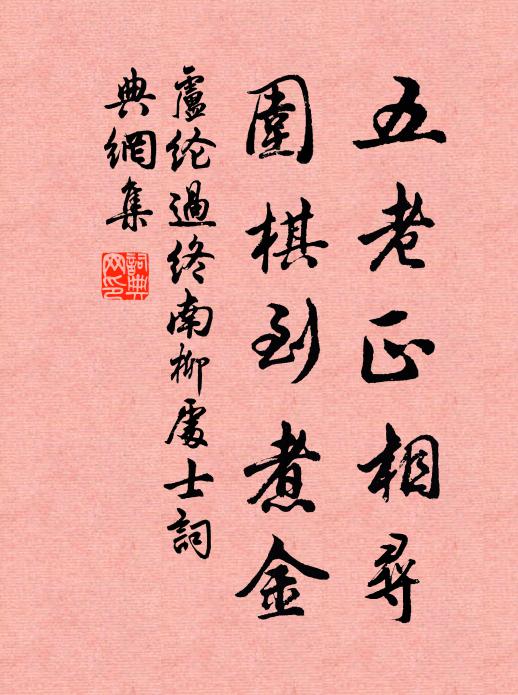 五老正相尋
圍棋到煮金
盧纶過終南柳處士詞
典網集
詞典網印